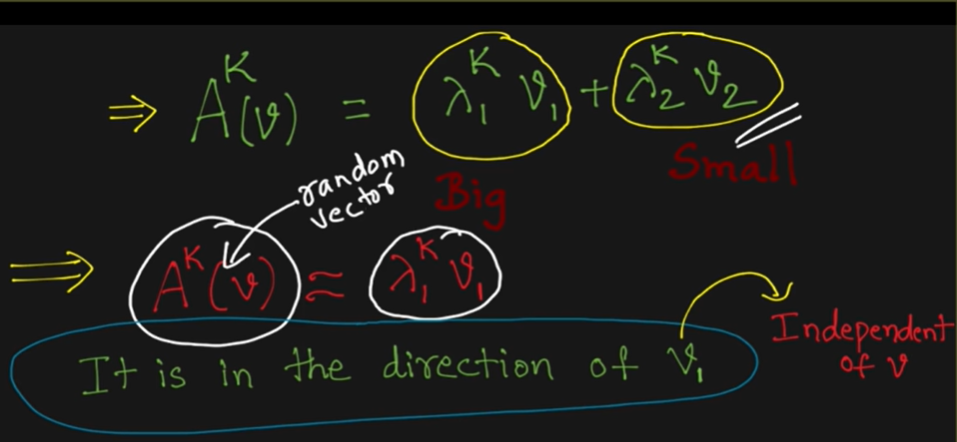 ⇒ A^K(v) = λ₁^K v₁ + λ₂^K v₂
Big
Small
random
vector
⇒ A^K(v) ≈ λ₁^K v₁
It is in the direction of v₁
Independent
of v